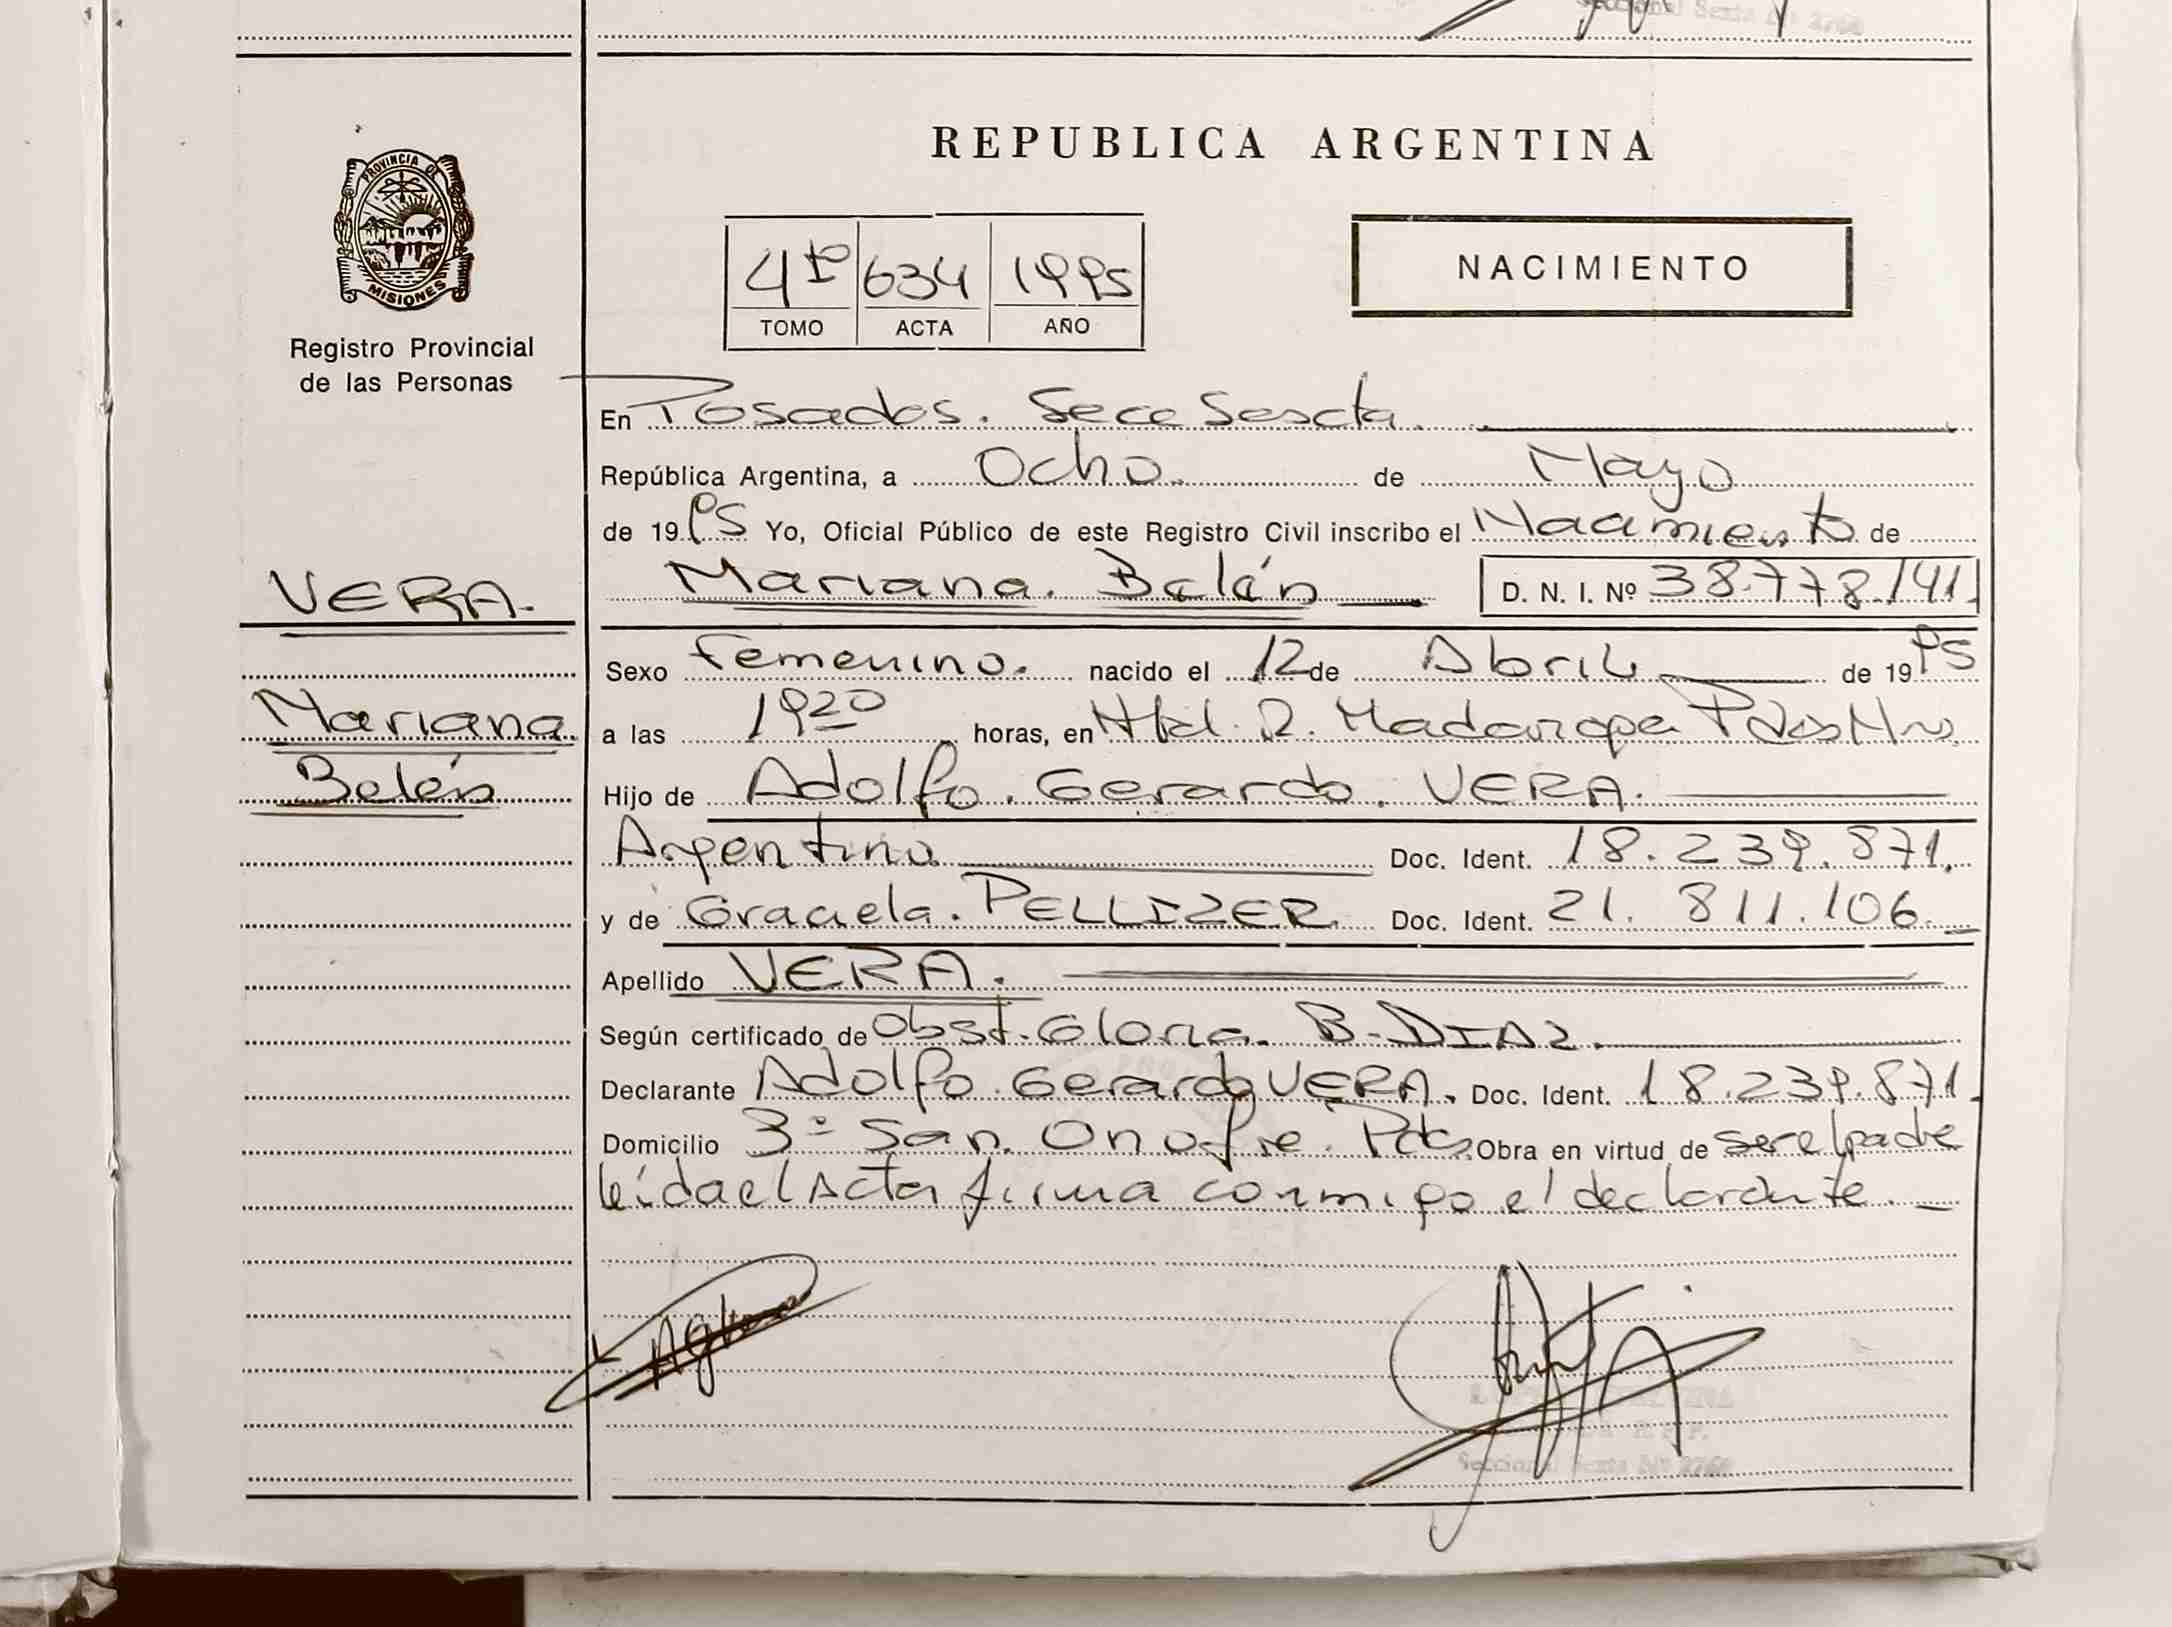 Seccional Sexta Nº 2768
PROVINCIA DE
MISIONES
Registro Provincial
de las Personas
REPUBLICA ARGENTINA
4to 634 1995
TOMO ACTA AÑO
NACIMIENTO
En Posadas. Secc Sexcta.
República Argentina, a Ocho. de Mayo
de 1995 Yo, Oficial Público de este Registro Civil inscribo el Nacimiento de
VERA.
Mariana. Belén D. N. I. Nº 38.778.141.
Sexo Femenino. nacido el 12 de Abril de 1995
Mariana
a las 1920 horas, en Htal. R. Madariaga Pdas Mns
Belén
Hijo de Adolfo. Gerardo. VERA.
Argentino Doc. Ident. 18.239.871.
y de Graciela. PELLIZER. Doc. Ident. 21.811.106.
Apellido VERA.
Según certificado de Obst. Gloria. B. DIAZ.
Declarante Adolfo. Gerardo VERA. Doc. Ident. 18.239.871.
Domicilio 3º San. Onofre. Pdas Obra en virtud de ser el padre
leída el Acta firma conmigo el declarante.
R.P.P.
Seccional Sexta Nº 2768